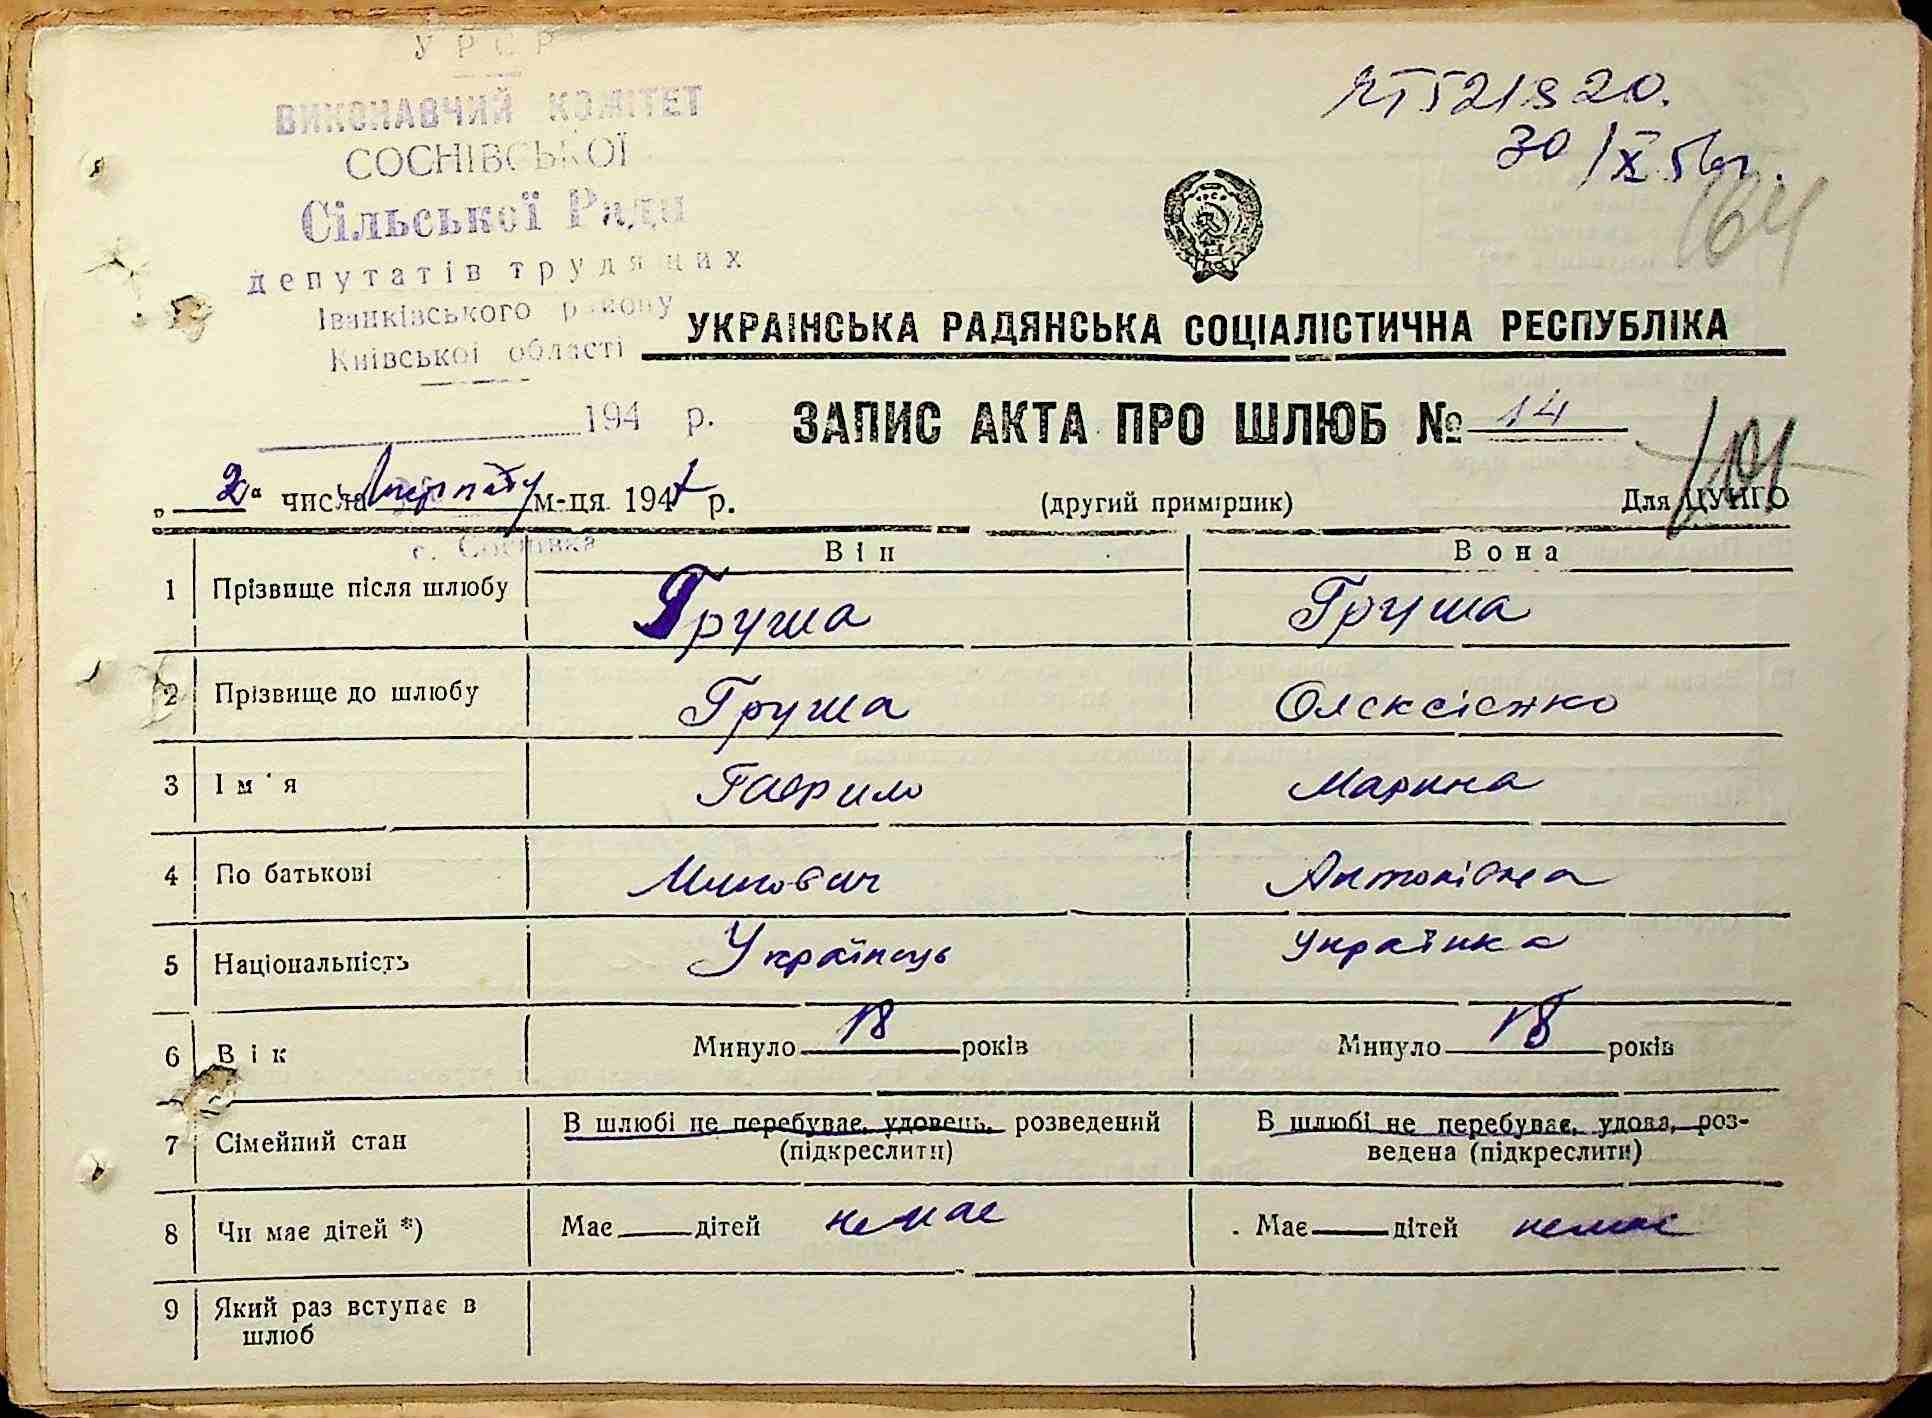 У Р С Р
ВИКОНАВЧИЙ КОМІТЕТ
СОСНІВСЬКОЇ
Сільської Ради
депутатів трудящих
Іванківського району
Київської області
194 р.
с. Соснівка
30/X 56 г.
164
УКРАЇНСЬКА РАДЯНСЬКА СОЦІАЛІСТИЧНА РЕСПУБЛІКА
ЗАПИС АКТА ПРО ШЛЮБ № 14
101
„2" числа м-ця 1947 р. (другий примірник) Для ЦУНГО
Він Вона
1 Прізвище після шлюбу Груша Груша
2 Прізвище до шлюбу Груша Олексієнко
3 Ім'я Гаврило Марина
4 По батькові Антонівна
5 Національність Українець Українка
6 Вік Минуло 18 років Минуло 18 років
7 Сімейний стан В шлюбі не перебуває, удовець, розведений (підкреслити) В шлюбі не перебуває, удова, роз-
ведена (підкреслити)
8 Чи має дітей *) Має дітей немає Має дітей немає
9 Який раз вступає в
шлюб